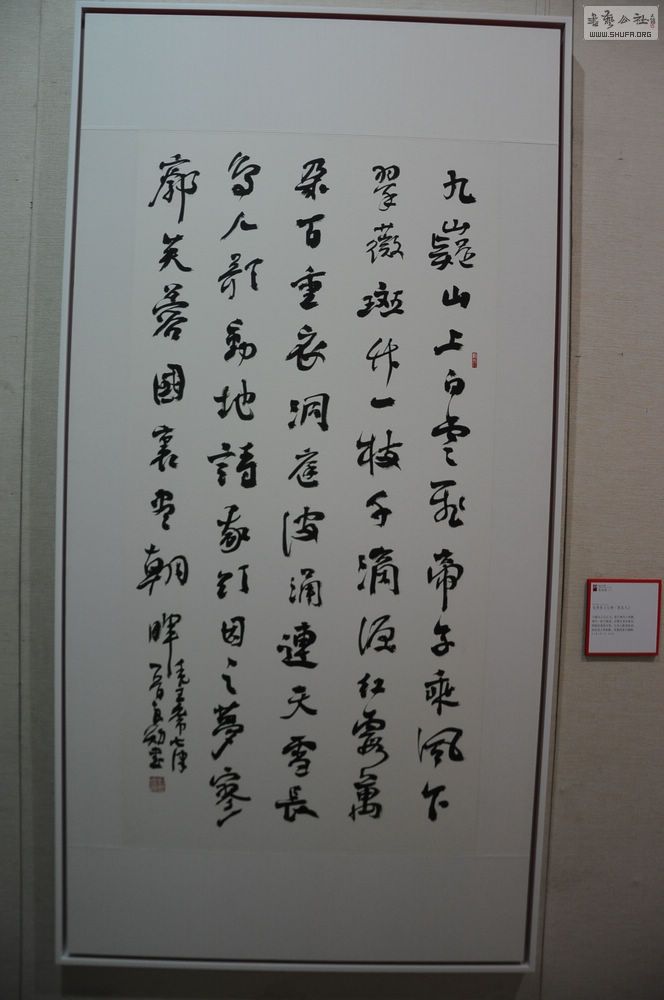 九嶷山上白雲飛帝子乘風下
翠薇斑竹一枝千滴泪紅霞萬
朵百重衣洞庭波涌連天雪長
島人歌動地詩我欲因之夢寥
廓芙蓉國裏盡朝暉
毛主席七律
WWW.SHUFA.ORG